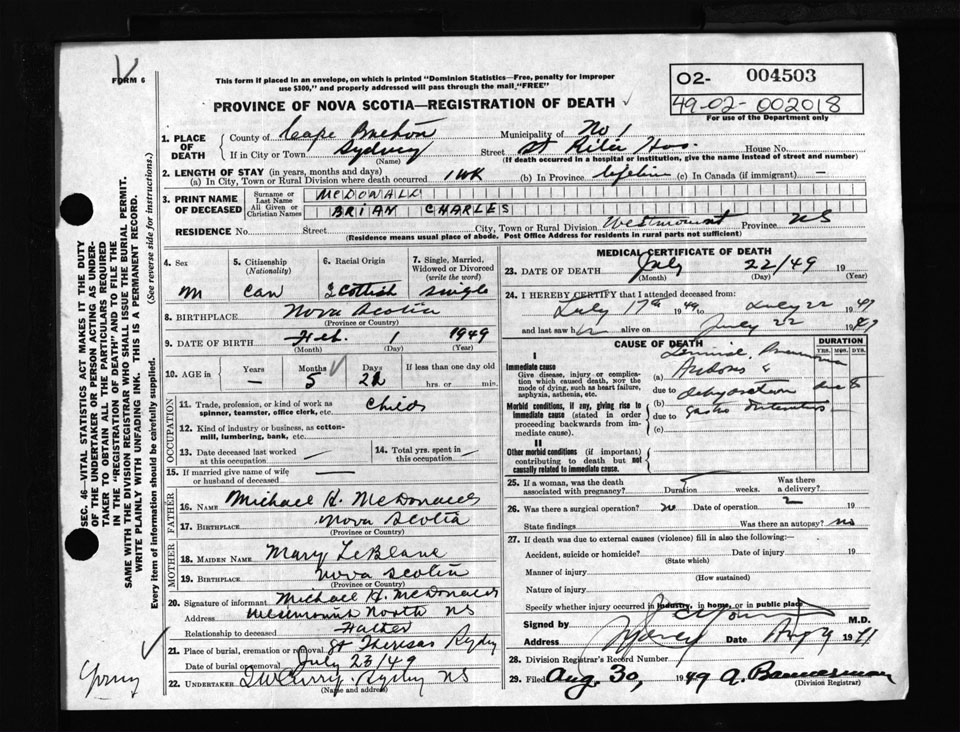 FORM 6
This form if placed in an envelope, on which is printed "Dominion Statistics—Free, penalty for improper
use $300," and properly addressed will pass through the mail "FREE"
PROVINCE OF NOVA SCOTIA—REGISTRATION OF DEATH
02- 004503
49-02-002018
For use of the Department only
SEC. 46—VITAL STATISTICS ACT MAKES IT THE DUTY
OF THE UNDERTAKER OR PERSON ACTING AS UNDER-
TAKER TO OBTAIN ALL THE PARTICULARS REQUIRED
IN THE "REGISTRATION OF DEATH" AND TO FILE THE
SAME WITH THE DIVISION REGISTRAR WHO SHALL ISSUE THE BURIAL PERMIT.
WRITE PLAINLY WITH UNFADING INK. THIS IS A PERMANENT RECORD.
Every item of information should be carefully supplied. (See reverse side for instructions.)
1. PLACE OF DEATH County of Cape Breton Municipality of No 1
If in City or Town Sydney Street St Rita Hos. House No.
(Name) (If death occurred in a hospital or institution, give the name instead of street and number)
2. LENGTH OF STAY (in years, months and days)
(a) In City, Town or Rural Division where death occurred 1 wk (b) In Province lifetime (c) In Canada (if immigrant) —
3. PRINT NAME OF DECEASED Surname or Last Name MCDONALD
All Given or Christian Names BRIAN CHARLES
RESIDENCE No. Street City, Town or Rural Division Westmount Province NS
(Residence means usual place of abode. Post Office Address for residents in rural parts not sufficient)
4. Sex 5. Citizenship (Nationality) 6. Racial Origin 7. Single, Married, Widowed or Divorced (write the word)
M Can Scottish single
8. BIRTHPLACE Nova Scotia
(Province or Country)
9. DATE OF BIRTH Feb. 1 1949
(Month) (Day) (Year)
10. AGE in Years Months Days If less than one day old
— 5 22 hrs. or min.
OCCUPATION
11. Trade, profession, or kind of work as
spinner, teamster, office clerk, etc. Child
12. Kind of industry or business, as cotton-
mill, lumbering, bank, etc.
13. Date deceased last worked at this occupation — 14. Total yrs. spent in this occupation —
15. If married give name of wife
or husband of deceased
FATHER
16. NAME Michael H. McDonald
17. BIRTHPLACE Nova Scotia
(Province or Country)
MOTHER
18. MAIDEN NAME Mary LeBlanc
19. BIRTHPLACE Nova Scotia
(Province or Country)
20. Signature of informant Michael H. McDonald
Address Westmount North NS
Relationship to deceased Father
21. Place of burial, cremation or removal St Theresas Sydney
Date of burial or removal July 23/49
22. UNDERTAKER Sydney NS
(Name and address)
MEDICAL CERTIFICATE OF DEATH
23. DATE OF DEATH July 22/49 19
(Month) (Day) (Year)
24. I HEREBY CERTIFY that I attended deceased from:
July 17th 1949 to July 22 1949
and last saw h alive on July 22 1949
CAUSE OF DEATH DURATION
YRS. MOS. DYS.
I
Immediate cause
Give disease, injury or compli-
cation which caused death, NOT the
mode of dying, such as heart failure,
asphyxia, asthenia, etc.
(a)
due to dehydration
Morbid conditions, if any, giving rise to
immediate cause (stated in order
proceeding backwards from im-
mediate cause).
(b)
due to gastro enteritis
(c)
II
Other morbid conditions (if important)
contributing to death but not
causally related to immediate cause.
25. If a woman, was the death Was there
associated with pregnancy? Duration weeks. a delivery?
26. Was there a surgical operation? no Date of operation 19
State findings Was there an autopsy? no
27. If death was due to external causes (violence) fill in also the following:
Accident, suicide or homicide? Date of injury 19
(State which)
Manner of injury
(How sustained)
Nature of injury
Specify whether injury occurred in industry, in home, or in public place
Signed by M.D.
Address Sydney Date Aug 9 19
28. Division Registrar's Record Number
29. Filed Aug. 30, 1949 A. Bannerman
(Division Registrar)